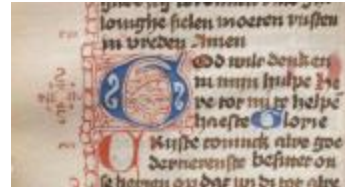 louighe sielen moeten rusten
in vreden Amen
God wilt denken
in mijn hulpe He
re tot mi te helpē
haeste Glorie
CRiste coninck alre goe
dertierenste besittet on
se herten op dat wi di tot alre